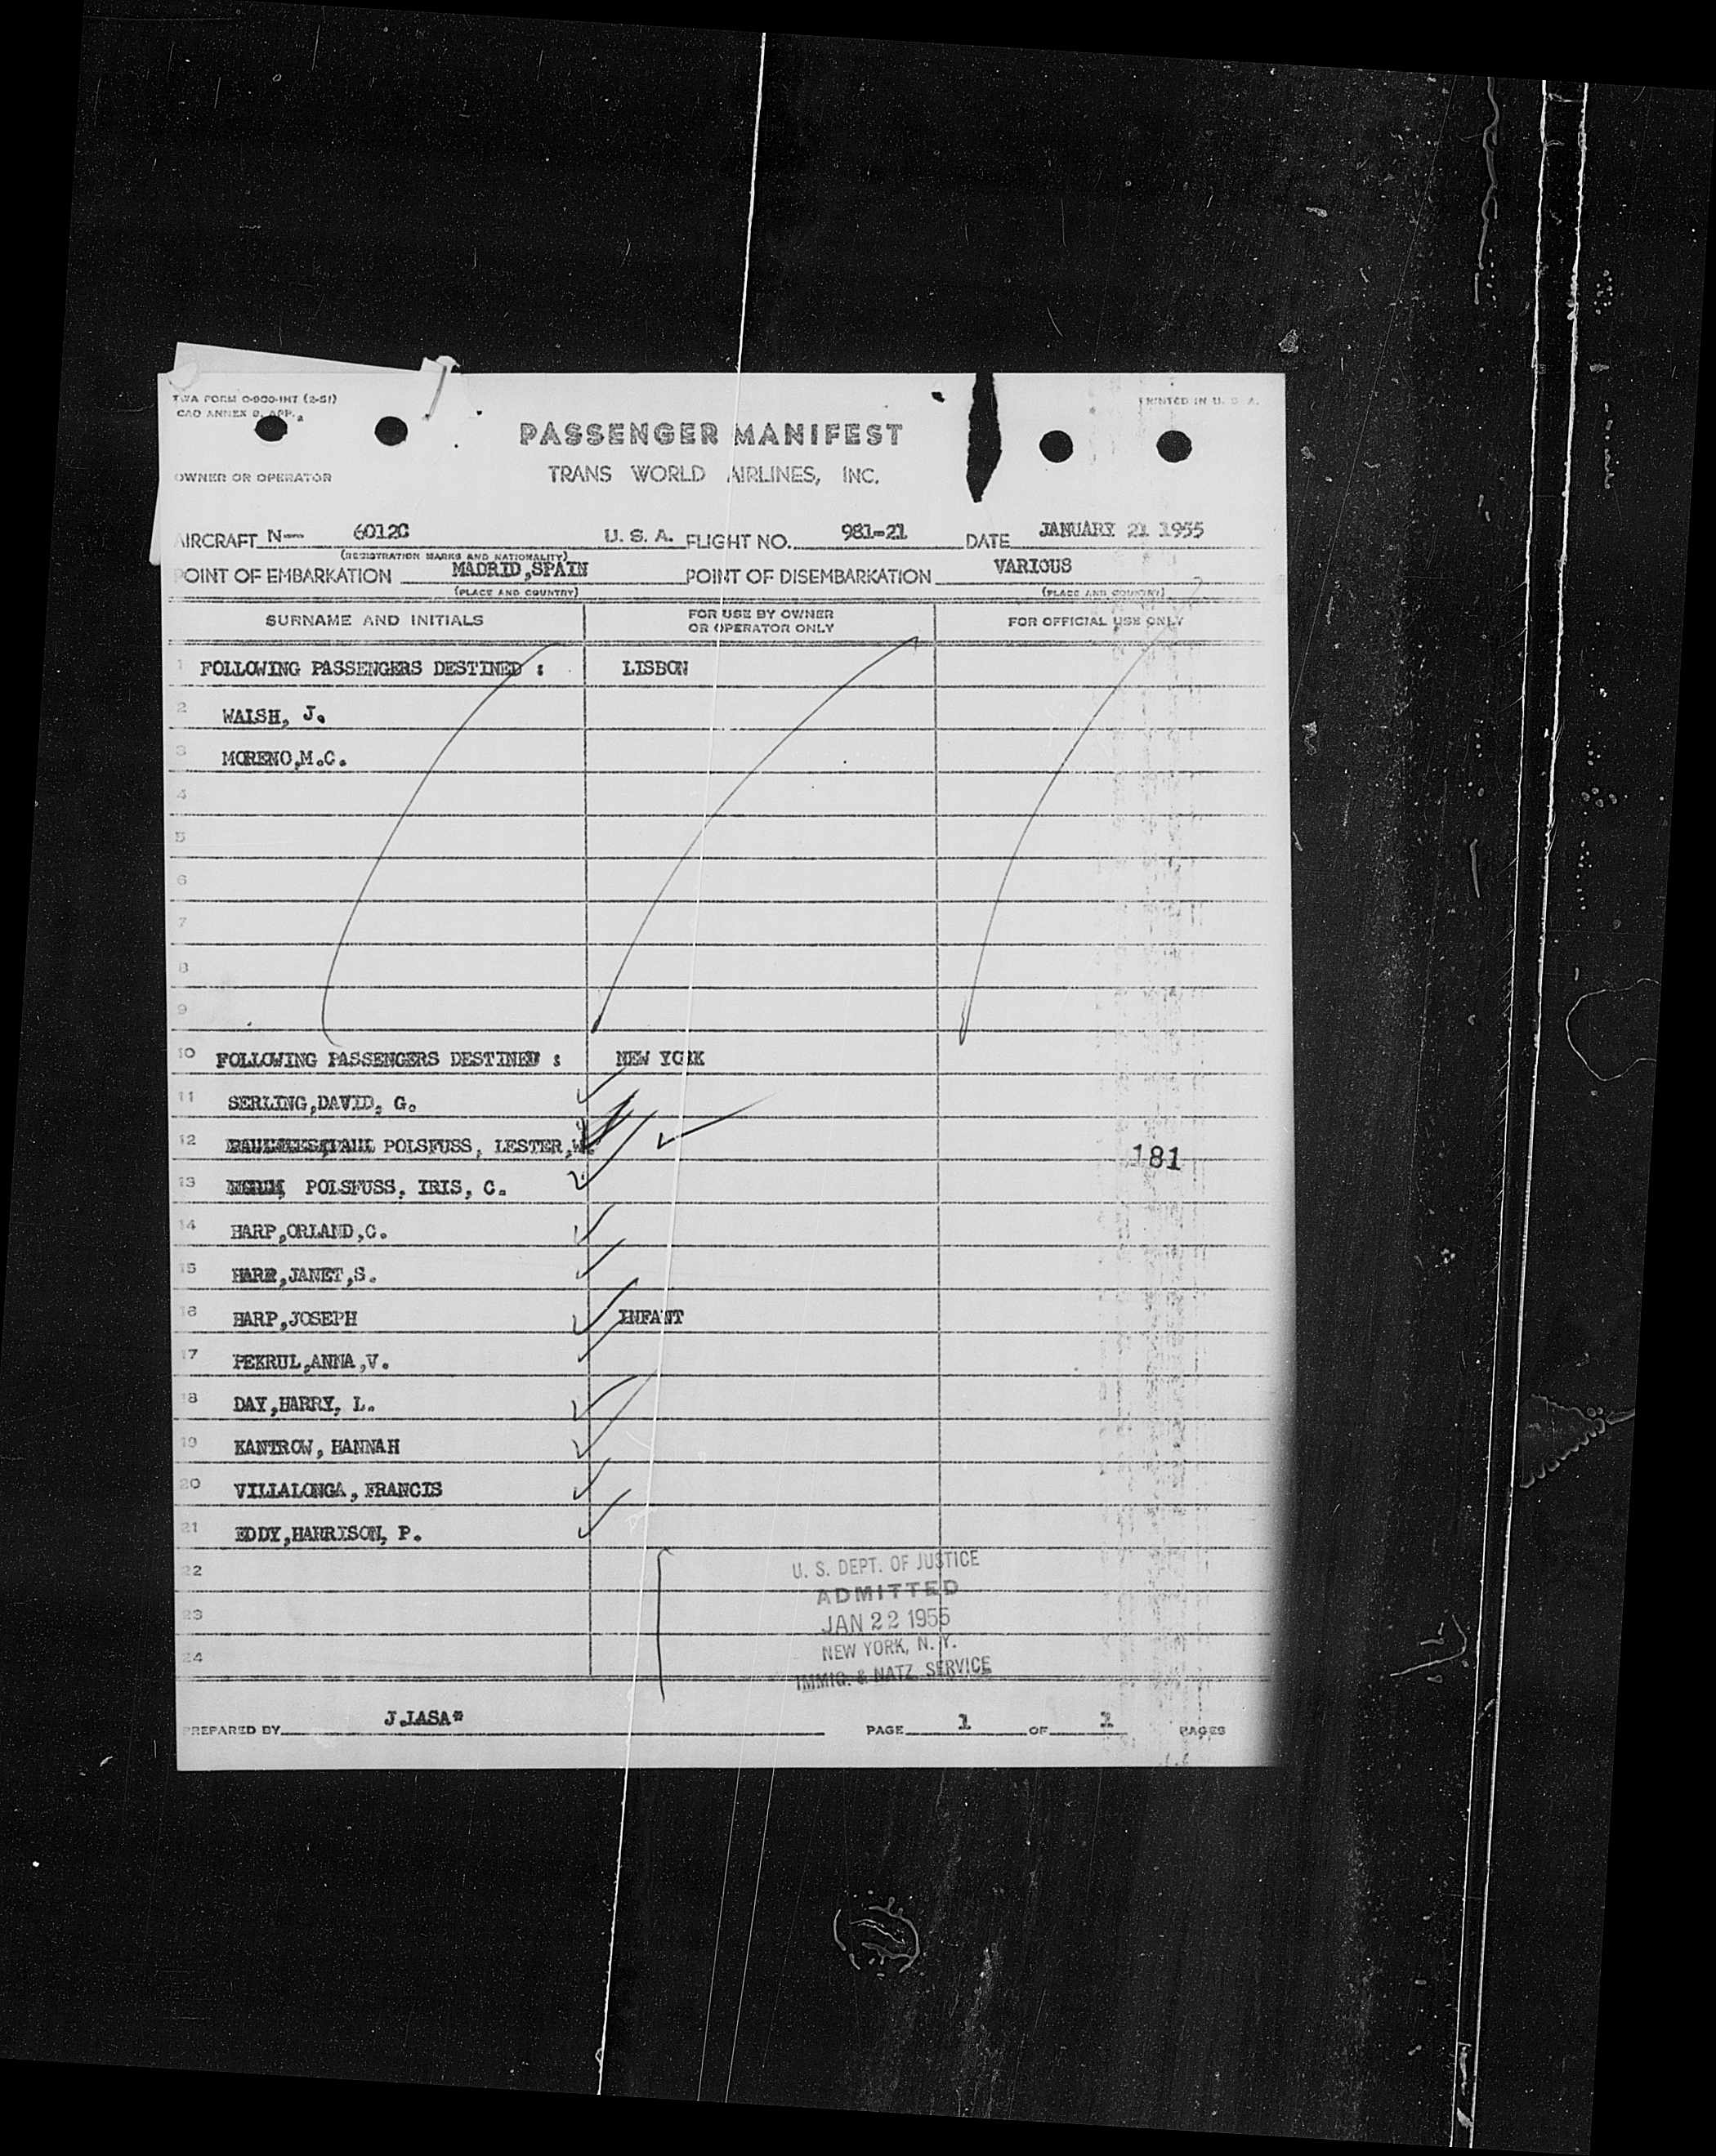 TWA FORM O-900-INT (2-51)
PRINTED IN U. S. A.
CAO ANNEX 9, APP. 2
PASSENGER MANIFEST
OWNER OR OPERATOR
TRANS WORLD AIRLINES, INC.
AIRCRAFT N— 6012C U. S. A. FLIGHT NO. 981-21 DATE JANUARY 21 1955
(REGISTRATION MARKS AND NATIONALITY)
POINT OF EMBARKATION MADRID,SPAIN POINT OF DISEMBARKATION VARIOUS
(PLACE AND COUNTRY) (PLACE AND COUNTRY)
SURNAME AND INITIALS FOR USE BY OWNER OR OPERATOR ONLY FOR OFFICIAL USE ONLY
1 FOLLOWING PASSENGERS DESTINED : LISBON
2 WALSH, J.
3 MORENO,M.C.
4
5
6
7
8
9
10 FOLLOWING PASSENGERS DESTINED : NEW YORK
11 SERLING,DAVID, G.
12 POLSFUSS, LESTER,W. 181
13 POLSFUSS, IRIS, C.
14 HARP,ORLAND,C.
15 HARP,JANET,S.
16 HARP,JOSEPH INFANT
17 PEKRUL,ANNA,V.
18 DAY,HARRY, L.
19 KANTROW, HANNAH
20 VILLALONGA, FRANCIS
21 EDDY,HARRISON, P.
22
23
24
U. S. DEPT. OF JUSTICE
ADMITTED
JAN 22 1955
NEW YORK, N. Y.
IMMIG. & NATZ. SERVICE
PREPARED BY J.LASA* PAGE 1 OF 1 PAGES